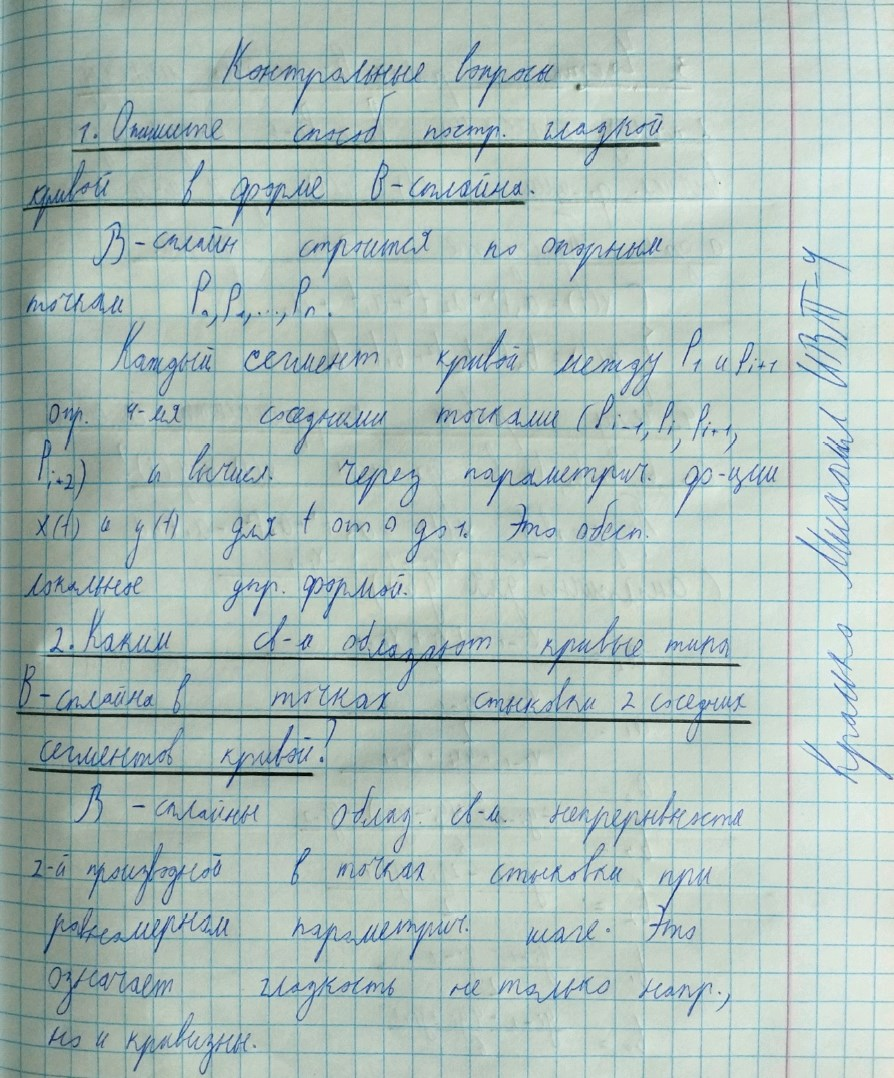 Контрольные вопросы
1. Опишите способ постр. гладкой
кривой в форме В-сплайна.
В-сплайн строится по опорным
точкам P₀, P₁, ..., Pₙ.
Каждый сегмент кривой между P₁ и Pi+1
опр. 4-мя соседними точками (Pi-1, Pi, Pi+1,
Pi+2) и вычисл. через параметрич. ф-ции
x(t) и y(t) для t от 0 до 1. Это обесп.
локальное упр. формой.
2. Каким св-м обладают кривые типа
В-сплайна в точках стыковки 2 соседних
сегментов кривой?
В-сплайны облад. св-м. непрерывности
2-й производной в точках стыковки при
равномерном параметрич. шаге. Это
означает гладкость не только напр.,
но и кривизны.
Михаил ИВТ-4